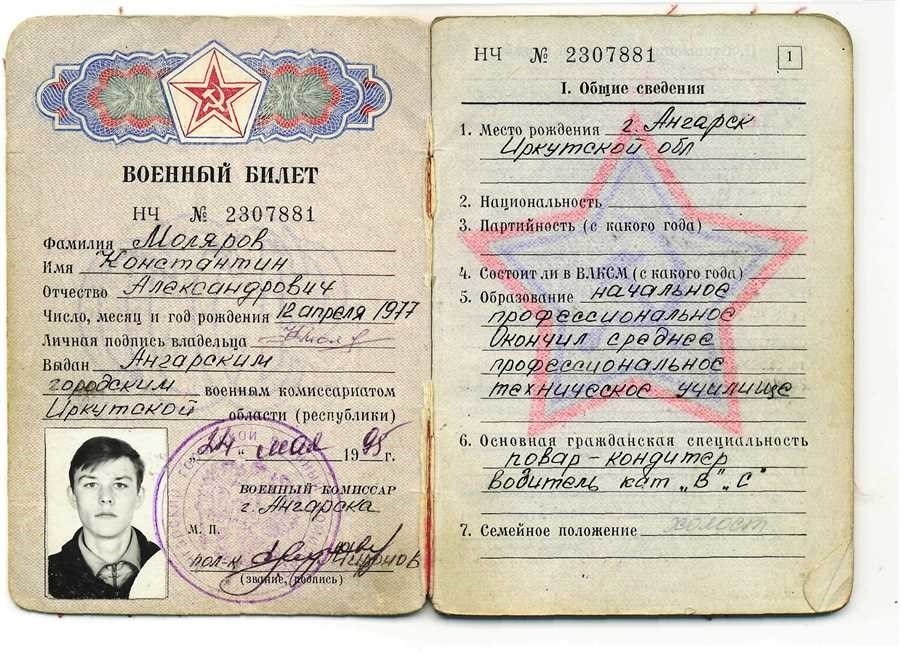 ВОЕННЫЙ БИЛЕТ
НЧ № 2307881
Фамилия Моляров
Имя Константин
Отчество Александрович
Число, месяц и год рождения 12 апреля 1977
Личная подпись владельца
Выдан Ангарским
городским военным комиссариатом
Иркутской области (республики)
„24“ мая 1995 г.
ВОЕННЫЙ КОМИССАР
г. Ангарска
М. П.
пол-к
(звание, подпись)
НЧ № 2307881 1
I. Общие сведения
1. Место рождения г. Ангарск
Иркутской обл
2. Национальность
3. Партийность (с какого года)
4. Состоит ли в ВЛКСМ (с какого года)
5. Образование начальное
профессиональное
Окончил среднее
профессиональное
техническое училище
6. Основная гражданская специальность
повар-кондитер
водитель кат „В“ „С“
7. Семейное положение холост